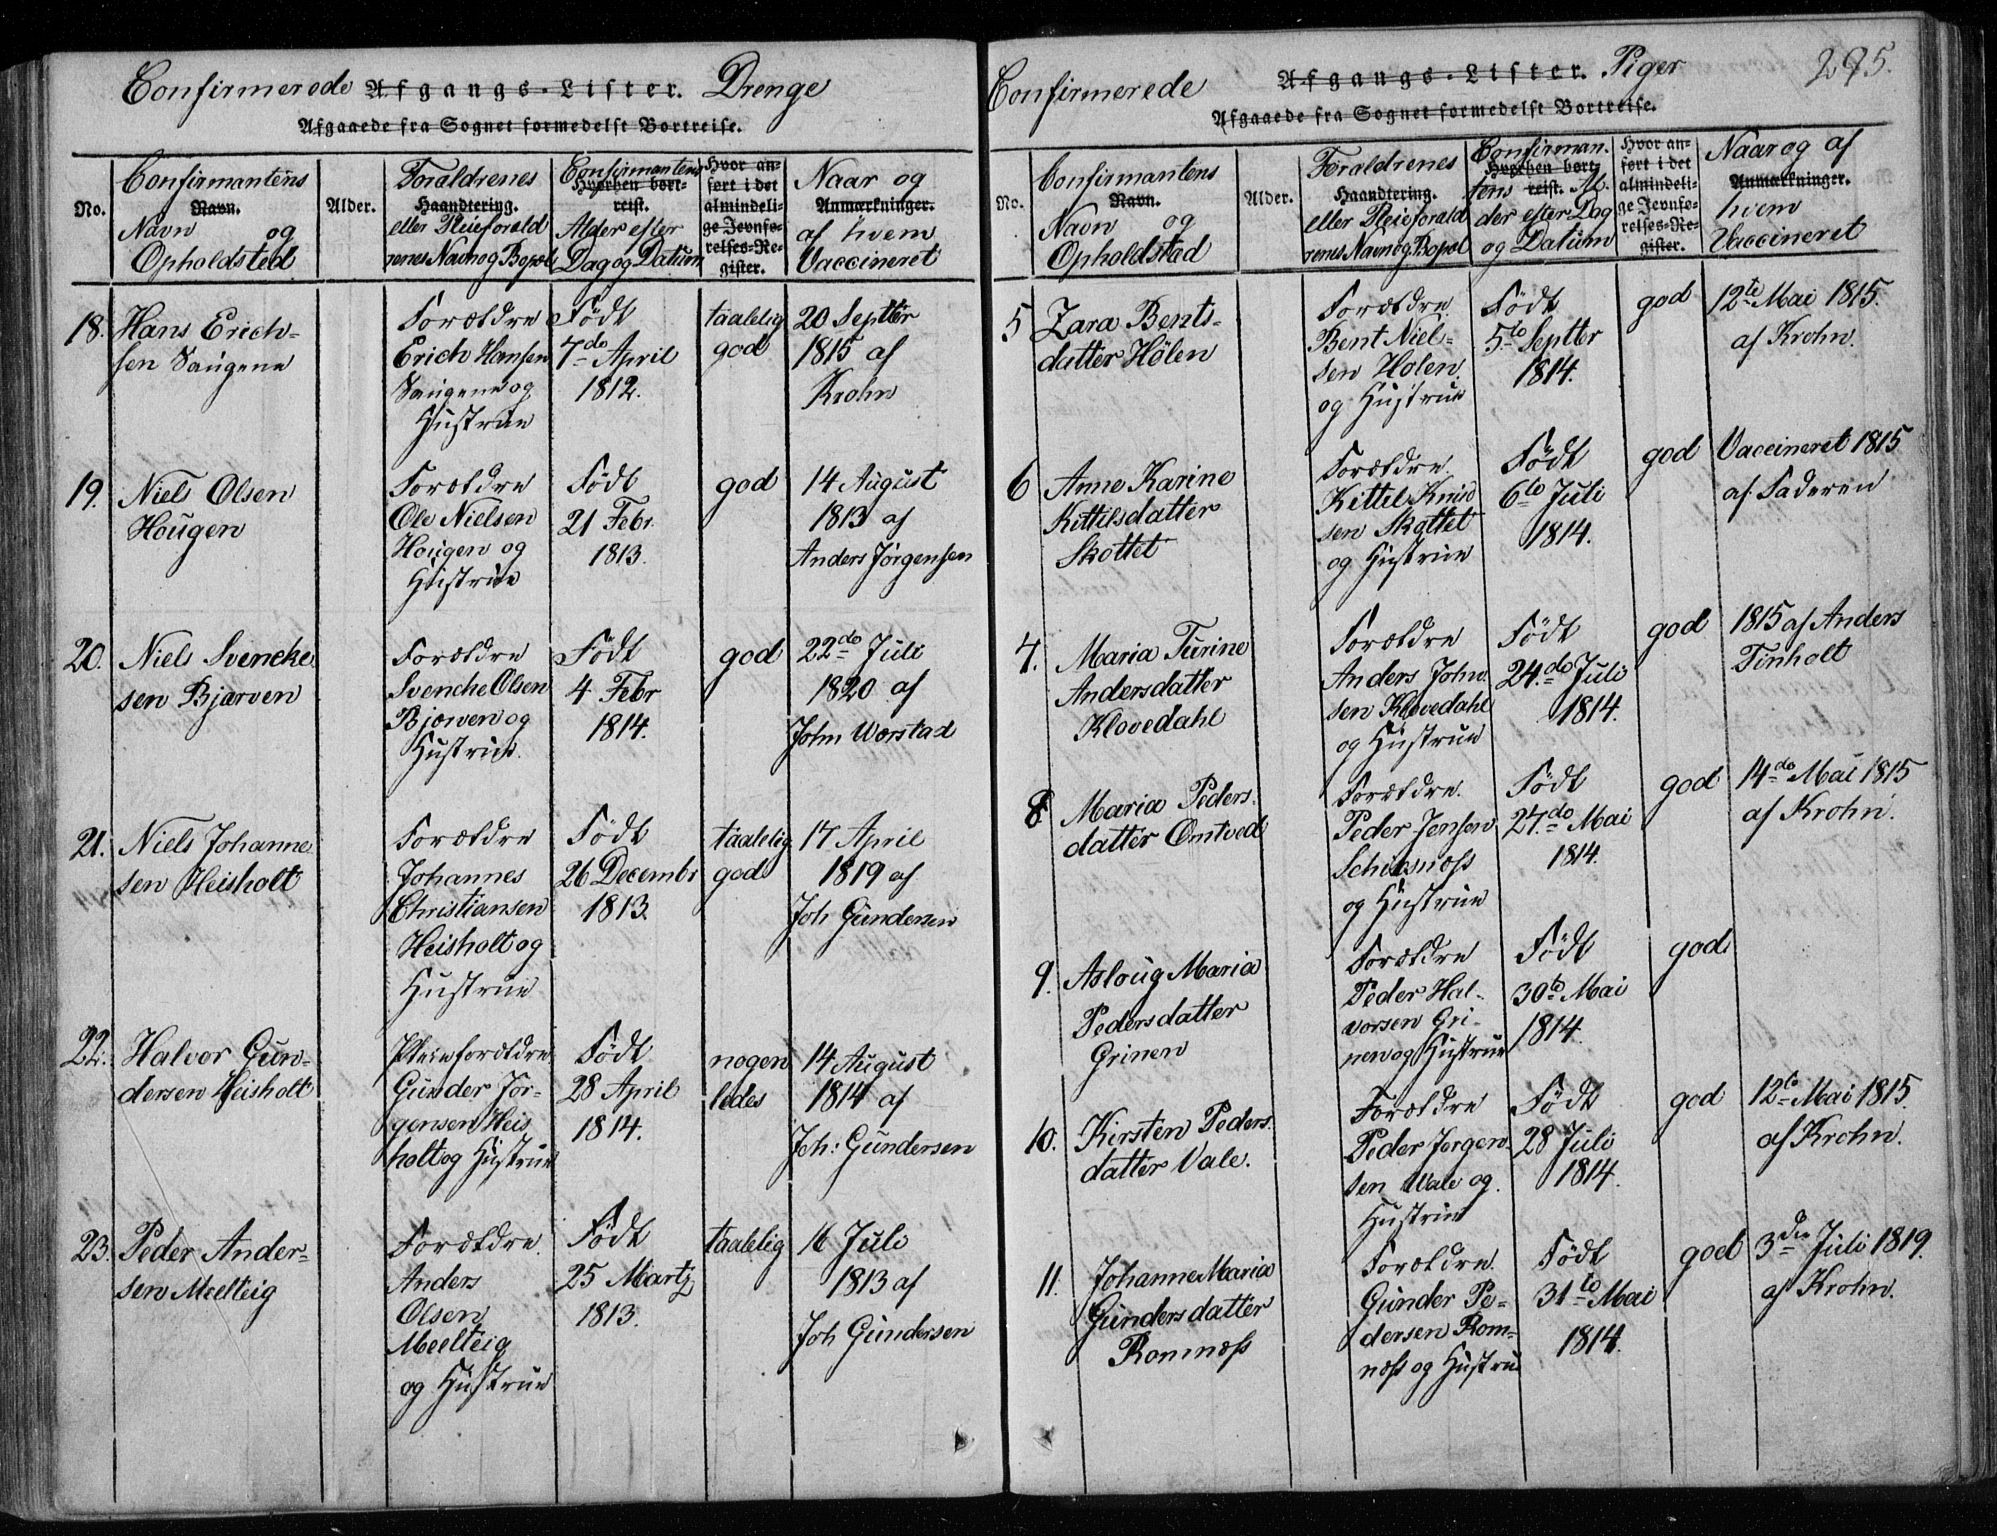 Confirmerede Afgangs-Lister. Drenge
Afgaaede fra Sognet formedelst Bortreise.
No.
Confirmantens
Navn.
Navn og
Opholdsted
Alder.
Foraldrenes
Haandtering.
eller Pleieforald
renes Navn og Bopæl
Confirmantens
Hvorhen bort-
reist.
Alder efter
Dag og Datum
Hvor an-
ført i det
almindeli-
ge Jevnfø-
relses-Re-
gister.
Naar og
Anmærkninger.
af hvem
Vaccineret
18.
Hans Erich-
sen Saugene
Forældre
Erich Hansen
Saugene og
Hustrue
Født
7de April
1812.
taalelig
god
20 Septbr
1815 af
Krohn
19.
Niels Olsen
Hougen
Forældre
Ole Nielsen
Hougen og
Hustrue
Født
21 Febr.
1813.
god
14 August
1813 af
Anders Jörgensen
20.
Niels Svencke
sen Bjærven
Forældre
Svenche Olsen
Bjærven og
Hustrue.
Født
4 Febr
1814.
god
22de Juli
1820 af
John Worstad
21.
Niels Johanne
sen Heisholt
Forældre
Johannes
Christiansen
Heisholt og
Hustrue
Født
26 Decembr
1813.
taalelig
god
17 April
1819 af
Joh Gundersen
22.
Halvor Gun-
dersen Heisholt
Pleieforældre
Gunder Jör-
gensen Heis
holt og Hustrue
Født
28 April
1814.
nogen
ledes
14 August
1814 af
Joh: Gundersen
23.
Peder Ander-
sen Meelteig
Forældre.
Anders
Olsen
Meelteig
og Hustrue
Født
25 Martz
1813.
taalelig
16 Juli
1813 af
Joh Gundersen
Confirmerede Afgangs-Lister. Piger
295.
Afgaaede fra Sognet formedelst Bortreise.
No.
Confirmantens
Navn.
Navn og
Opholdstad
Alder.
Foraldrenes
Haandtering.
eller Pleiforald
renes Navn og Bopæl
Confirman-
Hvorhen bort-
tens reist. Al-
der efter Dag
og Datum
Hvor an-
ført i det
almindeli-
ge Jevnfø-
relses-Re-
gister.
Naar og af
Anmærkninger.
hvem
Vaccineret
5
Zara Bents-
datter Hölen
Forældre.
Bent Niel-
sen Holen.
og Hustrue
Født
5te Septbr
1814.
god
12te Mai 1815.
af Krohn.
6
Anne Karine
Kittilsdatter
Skottet
Forældre.
Kittil Knud
sen Skottet
og Hustrue
Født
6te Juli
1814.
god
Vaccineret 1815
af Faderen
7.
Maria Turine
Andersdatter
Klovedahl
Forældre
Anders John
sen Klovedahl
og Hustrue
Født
24.de Juli
1814.
god
1815 af Anders
Tinholt
8
Maria Peders.
datter Omtved
Forældre.
Peder Jensen
og Hustrue
Født
27.de Mai
1814.
god
14de Mai 1815
af Krohn.
9.
Asloug Maria
Pedersdatter
Grinen
Forældre
Peder Hal-
vorsen Gri-
nen og Hustrue
Født
30te Mai
1814.
god
10.
Kirsten Peders.
datter Vale.
Forældre
Peder Jorgen
sen Wale og.
Hustrue
Født
28 Juli
1814.
god
12te Mai 1815.
af Krohn.
11.
Johanne Maria
Gundersdatter
Romnæss
Forældre.
Gunder Pe-
dersen Rom-
næss og Hustrue
Født
31te Mai
1814.
god
3die Juli 1819.
af Krohn.